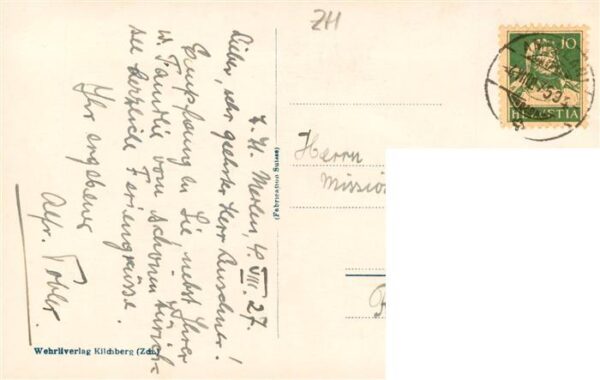 Z. Zt. Meilen, 4. VIII. 27.
Lieber, sehr geehrter Herr
Empfangen Sie nebst Ihrer
w. Familie vom schönen Zürich-
see herzliche Feriengrüsse.
Ihr ergebener
Alfr. Tobler.
ZH
10
HELVETIA
Herrn
Missio
(Fabrication Suisse)
Wehrliverlag Kilchberg (Zch.)